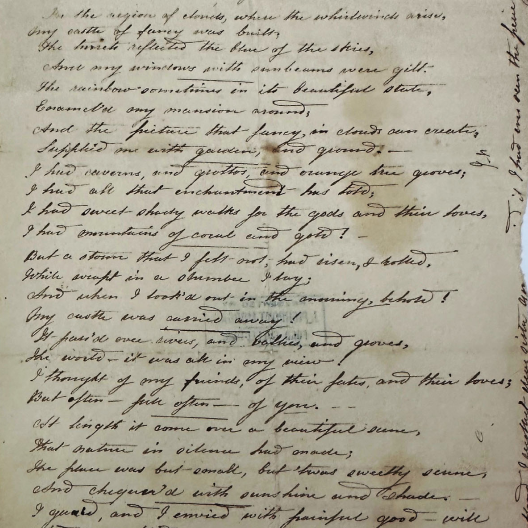 In the region of clouds, where the whirlwinds arise,
My castle of fancy was built;
The turrets reflected the blue of the skies,
And my windows with sunbeams were gilt.
The rainbow sometimes in its beautiful state,
Enamel'd my mansion around;
And the picture that fancy, in clouds can create,
Supplied me with garden, and ground. —
I had caverns, and grottos, and orange tree groves;
I had all that enchantment has told;
I had sweet shady walks for the gods and their loves,
I had mountains of coral and gold! —
But a storm that I felt not, had risen, & rolled,
While wrapt in a slumber I lay;
And when I look'd out in the morning, behold!
My castle was carried away!
It pass'd over rivers, and vallies, and groves,
The world — it was all in my view!
I thought of my friends, of their fates, and their loves;
But often — full often — of you. — —
At length it came over a beautiful scene,
That nature in silence had made;
The place was but small, but 'twas sweetly serene,
And chequer'd with sunshine and shade. —
I gaz'd, and I envied with painful good-will
if I had ever seen the